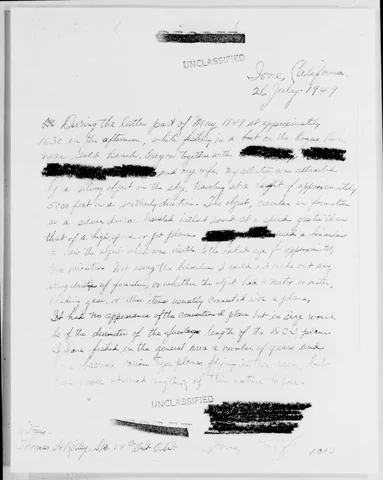 UNCLASSIFIED
Ione, California
26 July 1949
During the latter part of May 1949 at approximately
1630 in the afternoon, while fishing in a boat on the Rogue River
near Gold Beach, Oregon together with
and my wife. My attention was attracted
by a strong object in the sky, traveling at a height of approximately
5000 feet in a southerly direction. The object, circular in formation
as a silver dollar traveled without sound at a speed greater than
that of a high jet plane. with a binoculars
to view the object which was visible to the naked eye for approximately
two minutes. Not using the binoculars I could not make out any
design of formation, or whether the object had a motor or motors,
landing gear, or other items usually connected with a plane.
It had no appearance of the conventional plane but in size would
be of the diameter of the fuselage length of the DC3 plane.
I have fished in the general area a number of years and
have observed various type planes flying in this area, but
have never observed anything of this nature before.
UNCLASSIFIED
Thomas H Kelly, S/A. 19th Dist O.S.I.
Ione, Calif